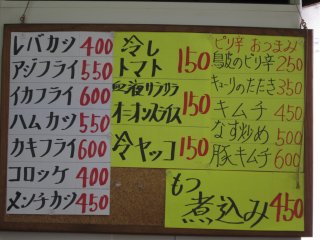 レバカツ 400
アジフライ 550
イカフライ 600
ハムカツ 550
カキフライ 600
コロッケ 400
メンチカツ 450
冷し
トマト 150
血液サラサラ
オニオンスライス 150
冷ヤッコ 150
ピリ辛 おつまみ
鳥皮のピリ辛 250
キューリのたたき 350
キムチ 450
なす炒め 500
豚キムチ 600
もつ
煮込み 450